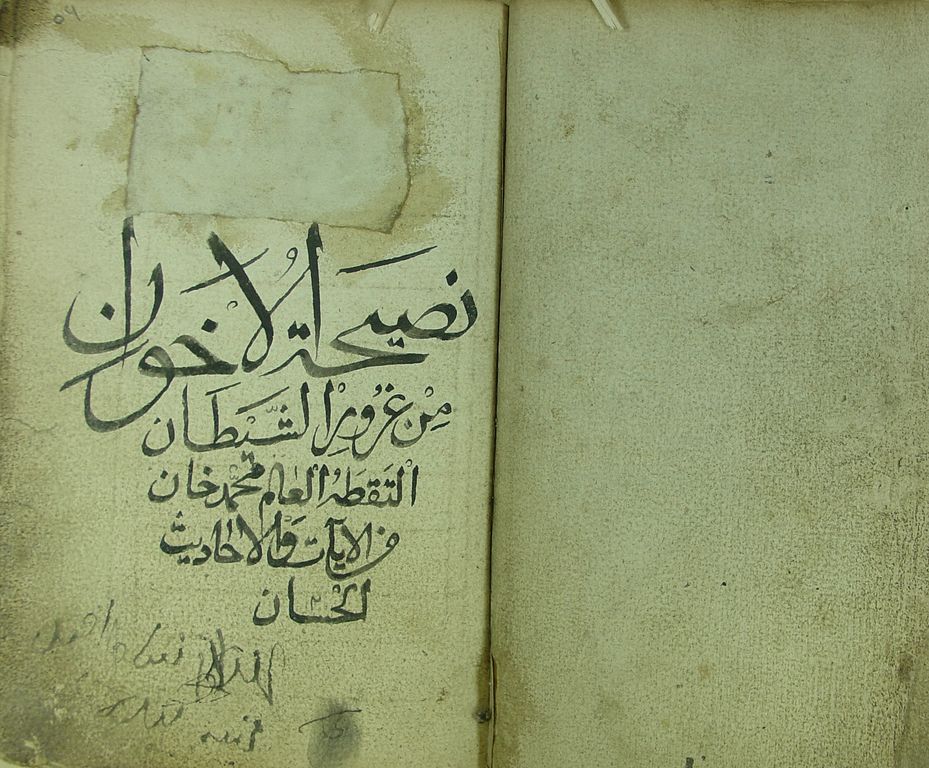 نصيحة الاخوان
مِنْ غُرُورِ الشَّيْطَان
الْتَقَطَهُ العَالم محمّد خان
من الايآت وَالاحاديث
الحْسان